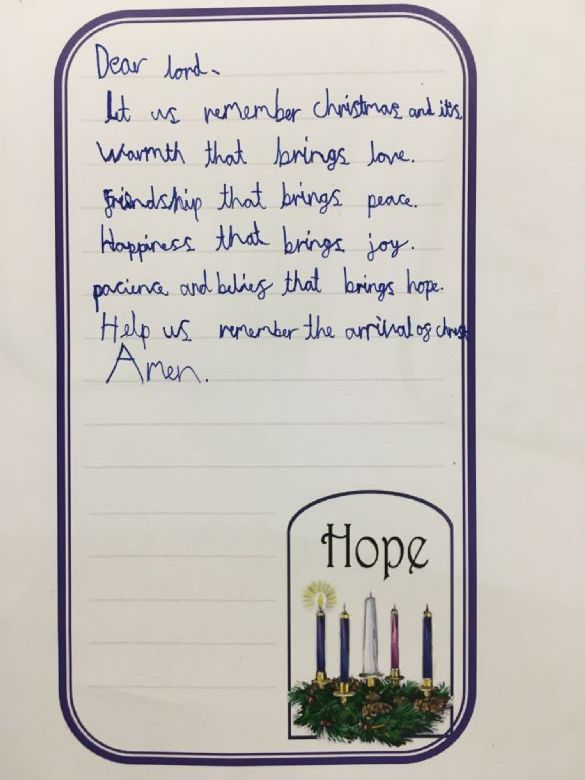 Dear lord,
Let us remember christmas and it's
Warmth that brings love.
friendship that brings peace.
Happiness that brings joy.
pacience and belief that brings hope.
Help us remember the arrival of christ
Amen.
Hope